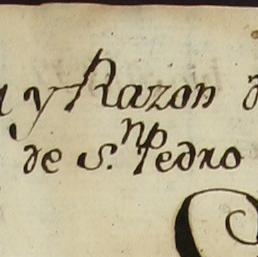 y Razon
de S.ⁿ Pedro